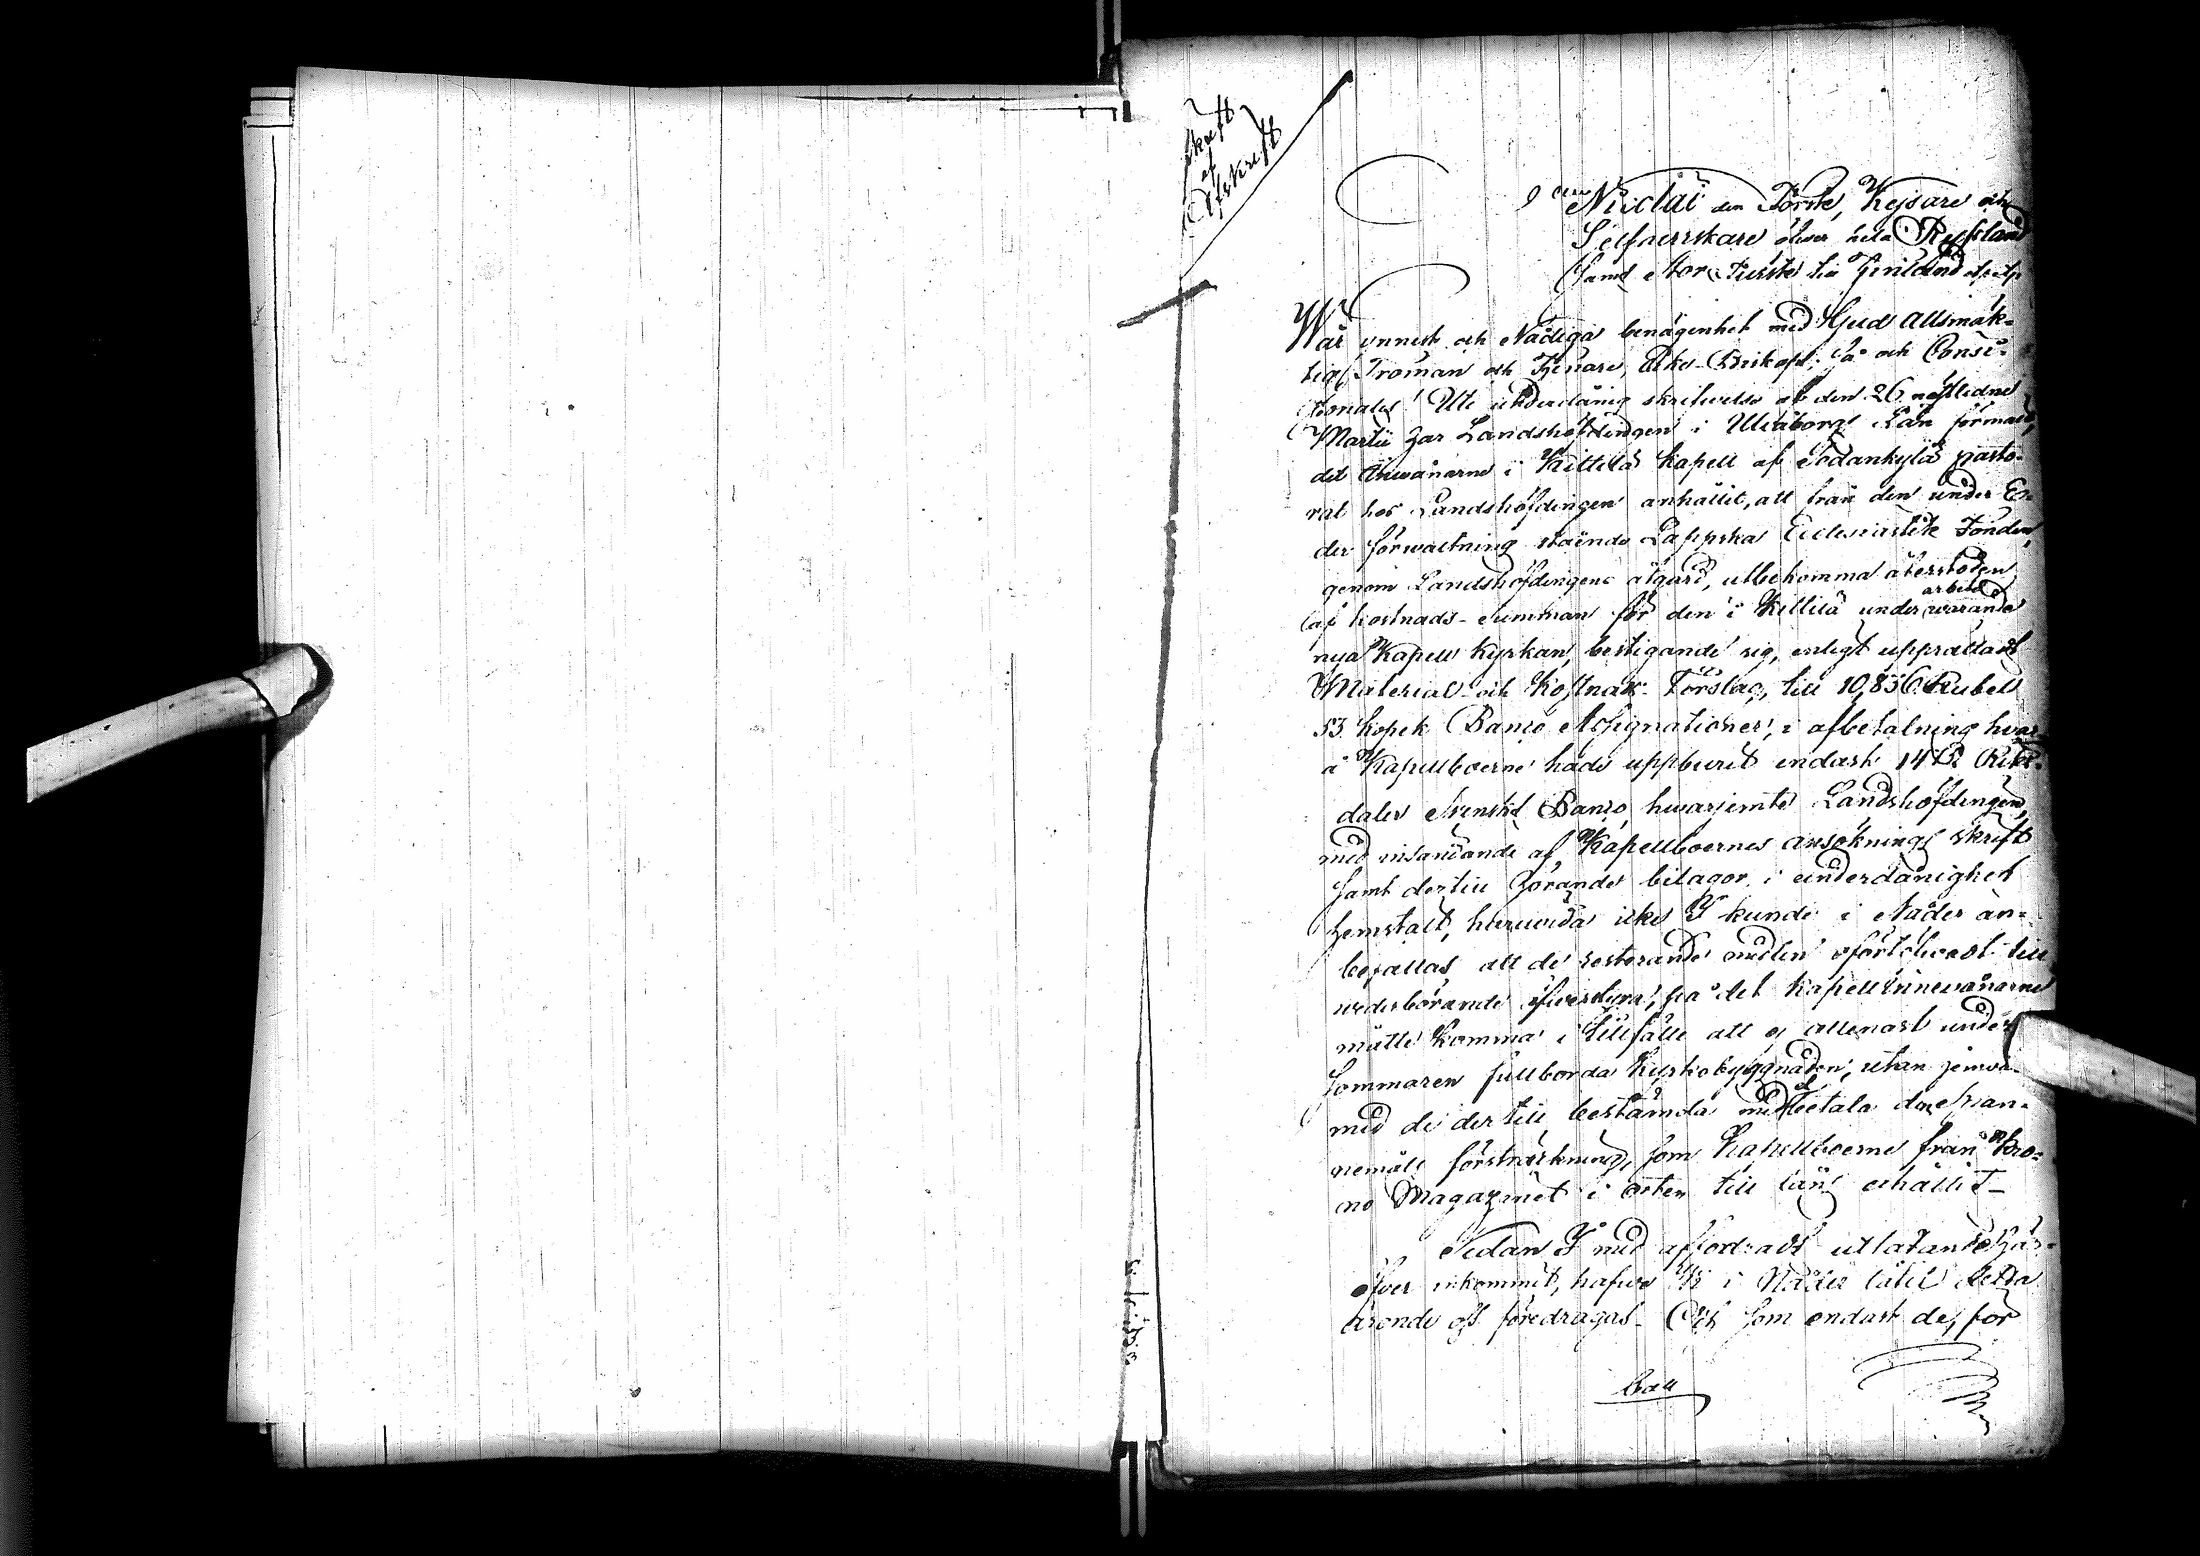 skrift
af
Afskrift
Nicolai den Förste, Kejsare och
Sjelfherrskare öfver hela Ryssland
samt Stor-Furste till Finland etc. etc.
Wår ynnest och Nådiga benägenhet med Gud Allsmäk-
tig; Troman och Tjenare, Erke-Biskop; så och Consi-
storiales! Uti underdånig skrifvelse af den 26 nästledne
Martii har Landshöfdingen i Uleåborgs Län förmält,
det Inwånarne i Kittilä Kapell af Sodankylä pasto-
rat hos Landshöfdingen anhållit, att från den under Er-
der förwaltning stående Lappska Ecclesiastik Fonden,
genom Landshöfdingens åtgärd, utbekomma återstoden
af kostnads-summan för den i Kittilä under arbete warande
nya Kapell kyrkan, bestigande sig, enligt upprättadt
Material- och Kostnads-Förslag, till 10,836 Rubel
53 kopek Banco Assignationer, i afbetalning hvar-
å Kapellboerne hade uppburit endast 1475 Riks-
daler Svenskt Banco, hwarjemte Landshöfdingen,
med insändande af Kapellboernes ansöknings skrift
samt dertill hörande bilagor, i underdånighet
hemstält, huruvida icke I kunde i Nåder an-
befallas, att de resterande medlen ofördröjeligt till
wederbörande öfwerstyra, på det Kapellinnewånarne
måtte komma i tillfälle att ej allenast under
sommaren fullborda Kyrkobyggnaden, utan jemwäl
med de dertill bestämda medel betala den Span-
nemåls försträckning, som Kapellboerne från Kro-
no Magazinet i orten till låns erhållit_
Sedan I med affordradt utlåtande här-
öfver inkommit, hafwe Wi i Nåder låtit detta
ärende oss föredragas. Och som endast de, för